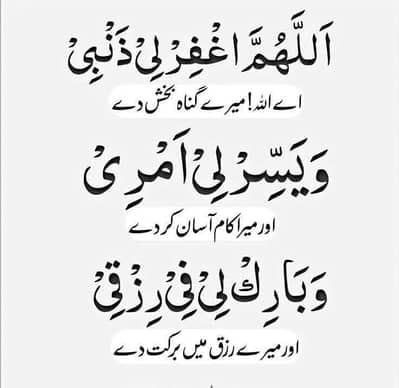 اَللَّهُمَّ اغْفِرْ لِیْ ذَنْبِیْ
اے اللہ! میرے گناہ بخش دے
وَیَسِّرْ لِیْ اَمْرِیْ
اور میرا کام آسان کر دے
وَبَارِكْ لِیْ فِیْ رِزْقِیْ
اور میرے رزق میں برکت دے